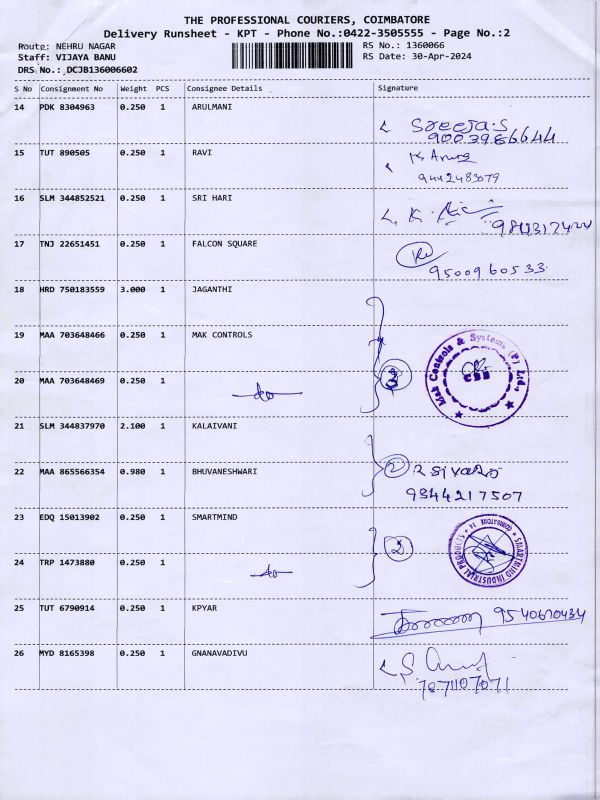 THE PROFESSIONAL COURIERS, COIMBATORE
Delivery Runsheet - KPT - Phone No.:0422-3505555 - Page No.:2
Route: NEHRU NAGAR RS No.: 1360066
Staff: VIJAYA BANU RS Date: 30-Apr-2024
DRS No.: DCJB136006602
S No Consignment No Weight PCS Consignee Details Signature
14 PDK 8304963 0.250 1 ARULMANI
Sreeja.S
9003986644
15 TUT 890505 0.250 1 RAVI
9442483079
16 SLM 344852521 0.250 1 SRI HARI
17 TNJ 22651451 0.250 1 FALCON SQUARE
9500960533
18 HRD 750183559 3.000 1 JAGANTHI
19 MAA 703648466 0.250 1 MAK CONTROLS
Mak Controls & Systems (P) Ltd.,
CBE
3
20 MAA 703648469 0.250 1
do
21 SLM 344837970 2.100 1 KALAIVANI
22 MAA 865566354 0.980 1 BHUVANESHWARI
2
9344217507
23 EDQ 15013902 0.250 1 SMARTMIND
SMARTMIND INDUSTRIAL PRODUCTS
COIMBATORE - 14
2
24 TRP 1473880 0.250 1
do
25 TUT 6790914 0.250 1 KPYAR
9540670434
26 MYD 8165398 0.250 1 GNANAVADIVU
7871107071